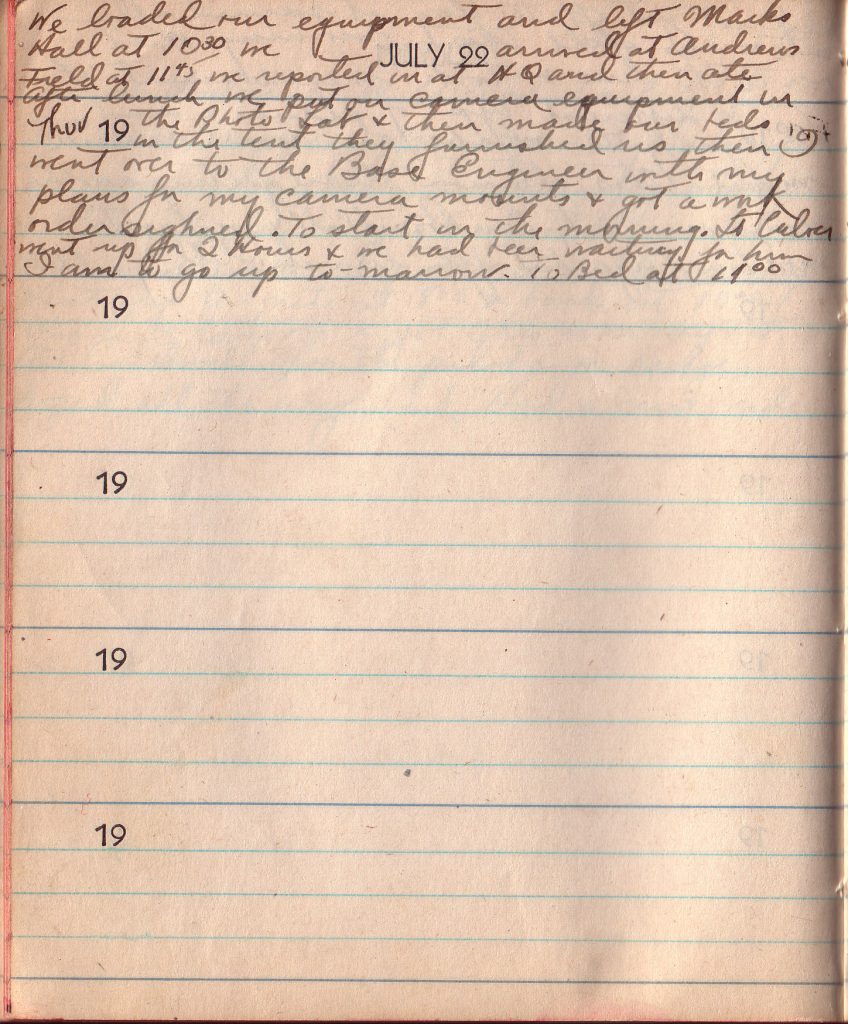 We loaded our equipment and left Marks
Hall at 10 30 we JULY 22 arrived at Andrews
Field at 11 45 we reported in at HQ and then ate
After lunch we put our camera equipment in
Thur 19 the Photo Lab & then made our beds
in the tent they furnished us then
went over to the Base Engineer with my
plans for my camera mounts & got a work
order sighned. To start in the morning. Lt Culver
went up for 2 Hours & we had beer waiting for him
I am to go up to-marrow. To Bed at 11 00
19
19
19
19